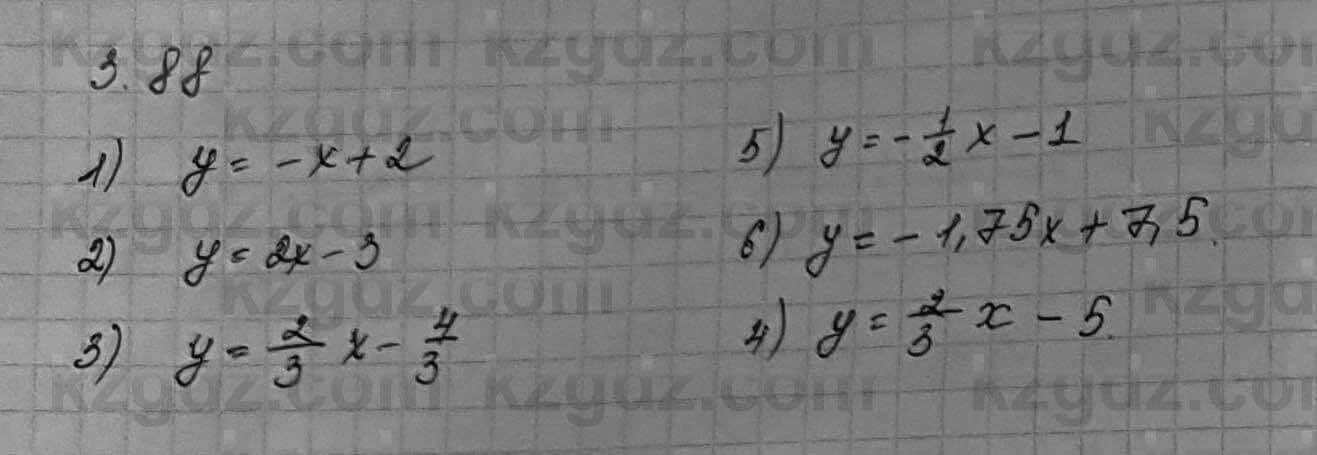 3.88
1) y = -x + 2
2) y = 2x - 3
3) y = 2/3 x - 4/3
5) y = -1/2 x - 1
6) y = -1,75x + 7,5.
4) y = 2/3 x - 5.
kzgdz.com kzgdz.com kzgdz.com
kzgdz.com kzgdz.com
kzgdz.com kzgdz.com kzgdz.com
kzgdz.com kzgdz.com
kzgdz.com kzgdz.com kzgdz.com